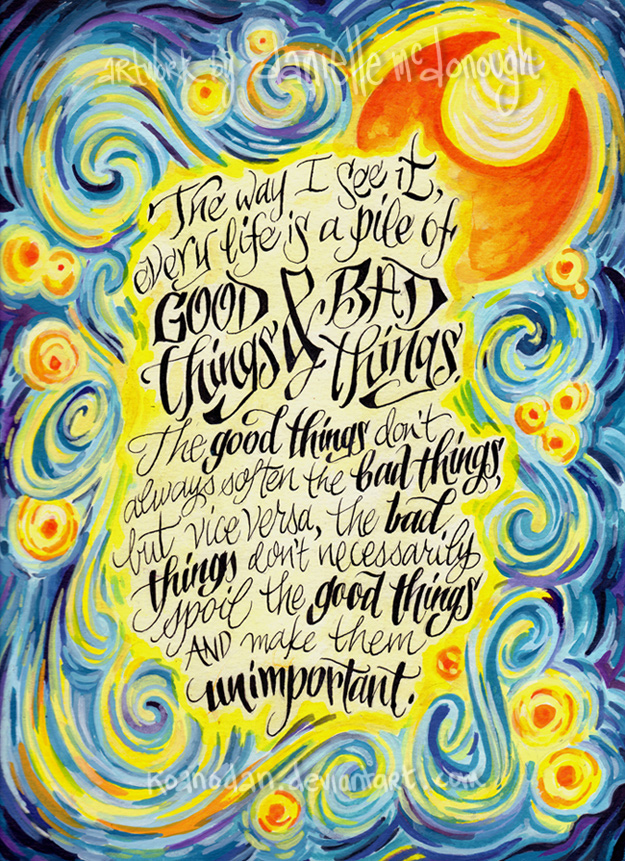 artwork by danielle mcdonough
The way I see it,
every life is a pile of
GOOD & BAD
things things.
The good things don't
always soften the bad things,
but vice versa, the bad
things don't necessarily
spoil the good things
AND make them
unimportant.
koanodan.deviantart.com